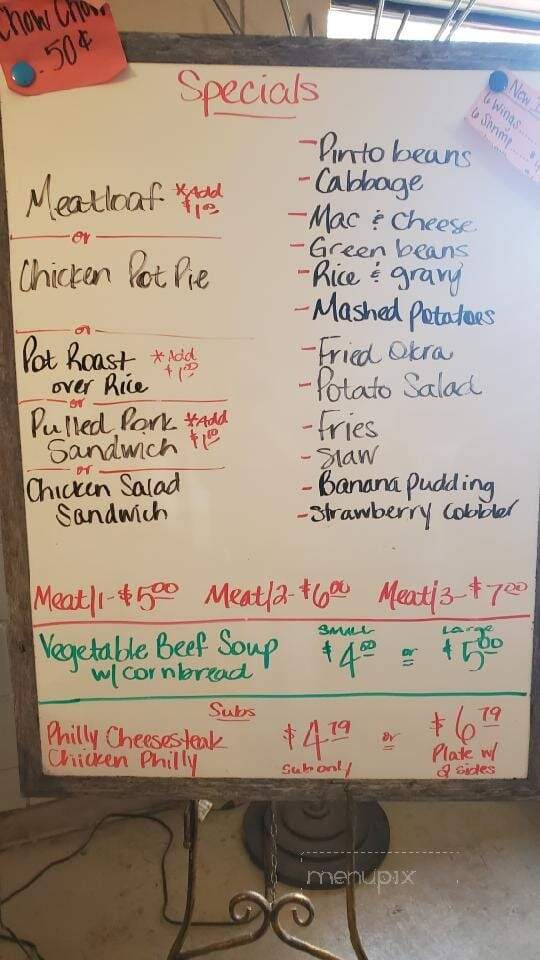 Chow Chow
.50¢
Specials
6 Wings
6 Shrimp
Meatloaf *Add $1.00
or
Chicken Pot Pie
or
Pot Roast *Add $1.00
over Rice
or
Pulled Pork *Add $1.00
Sandwich
or
Chicken Salad
Sandwich
- Pinto beans
- Cabbage
- Mac & Cheese
- Green beans
- Rice & gravy
- Mashed Potatoes
- Fried Okra
- Potato Salad
- Fries
- Slaw
- Banana pudding
- Strawberry Cobbler
Meat/1-$5.00 Meat/2-$6.00 Meat/3-$7.00
Vegetable Beef Soup
w/ cornbread
Small
$4.00 or
Large
$5.00
Subs
Philly Cheesesteak
Chiicken Philly
$4.79 or
Sub only
$6.79
Plate w/
2 sides
menupix